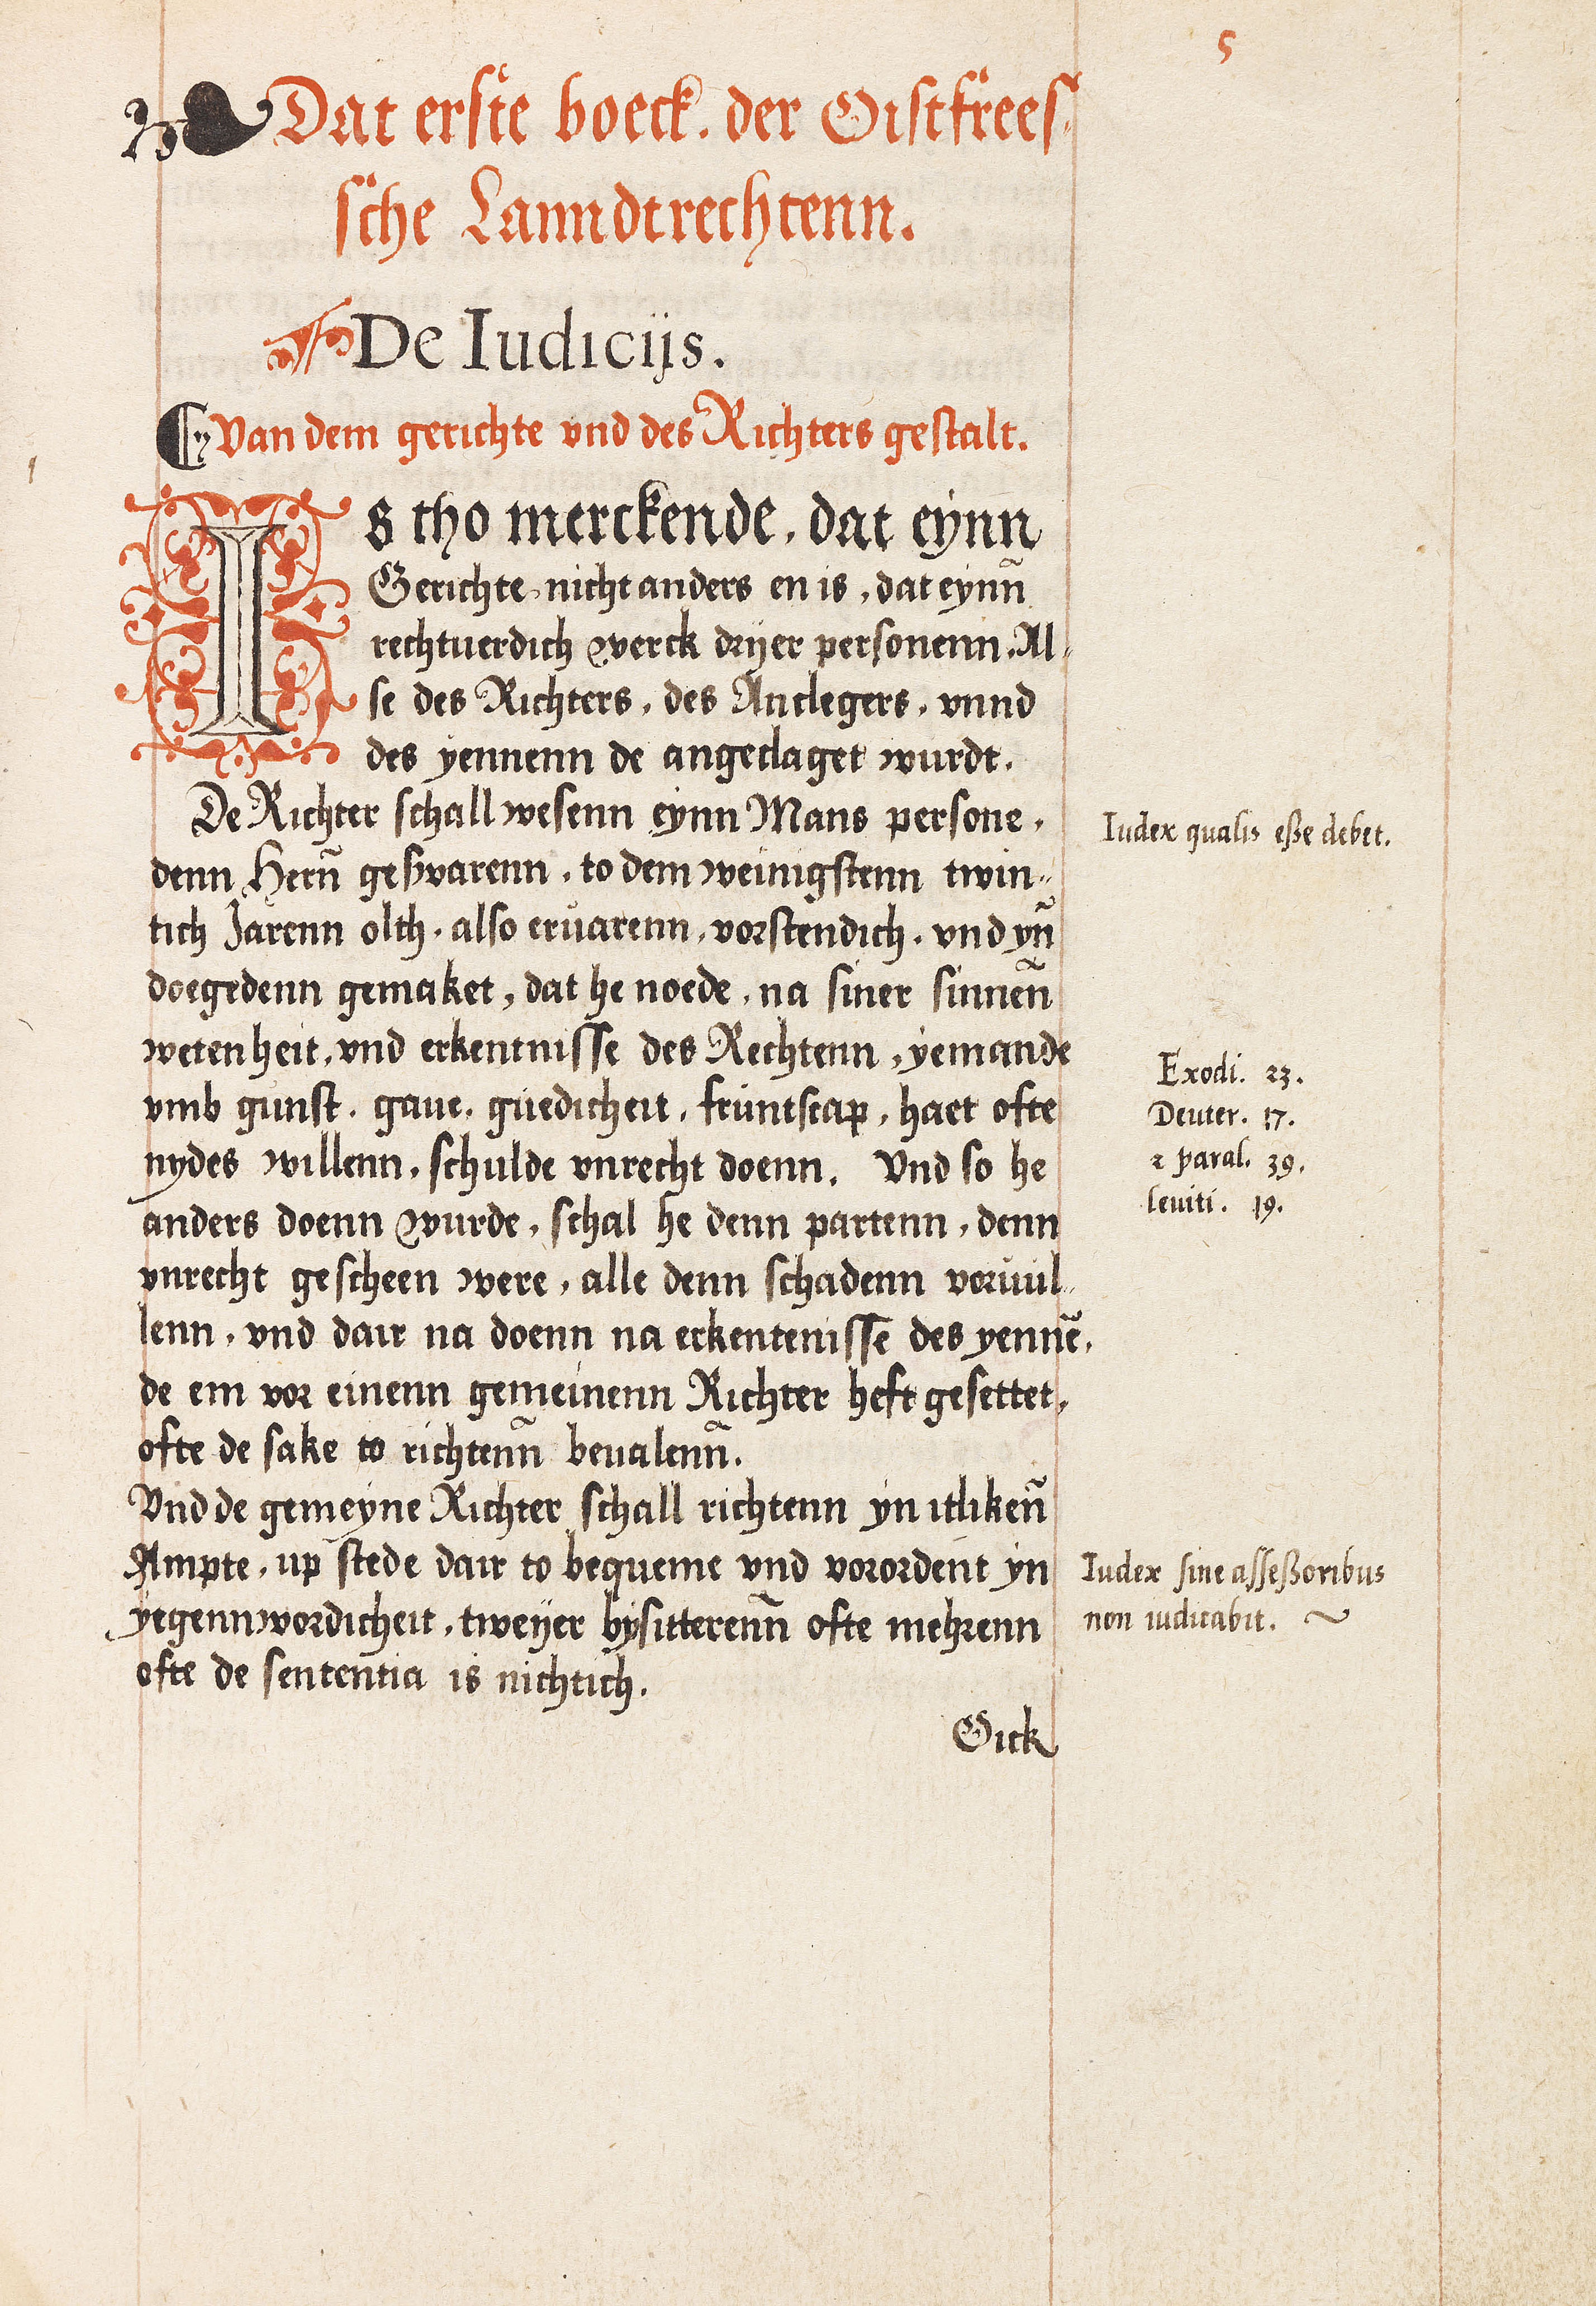 5
Dat erste boeck. der Oistfrees-
sche Lanndtrechtenn.
De Iudicijs.
Van dem gerichte vnd des Richters gestalt.
Is tho merckende, dat eynn
Gerichte nicht anders en is, dat eynñ
rechtuerdich werck dryer personenn. Al-
se des Richters, des Anclegers, vnnd
des yennenn de angeclaget wurdt.
De Richter schall wesenn eynn Mans persone,
Iudex qualis eße debet.
denn Herñ geswarenn, to dem weinigstenn twin-
tich Jarenn olth, also eruarenn, vorstendich, vnd yñ
doegedenn gemaket, dat he noede, na siner sinneñ
wetenheit, vnd erkentnisse des Rechtenn, yemande
Exodi. 23.
vmb gunst, gaue, guedicheit, fruntscap, haet ofte
Deuter. 17.
nydes willenn, schulde vnrecht doenn. Vnd so he
2 paral. 39.
anders doenn wurde, schal he denn partenn, denn
leuiti. 19.
vnrecht gescheen were, alle denn schadenn voruul-
lenn, vnd dair na doenn na erkentenisse des yennē,
de em vor einenn gemeinenn Richter heft gesettet,
ofte de sake to richtenñ beualenñ.
Vnd de gemeyne Richter schall richtenn yn itlikeñ
Ampte, up stede dair to bequeme vnd vorordent yn
Iudex sine assessoribus
yegennwordicheit, tweyer bysitterenñ ofte mehrenn
non iudicabit.
ofte de sententia is nichtich.
Oick